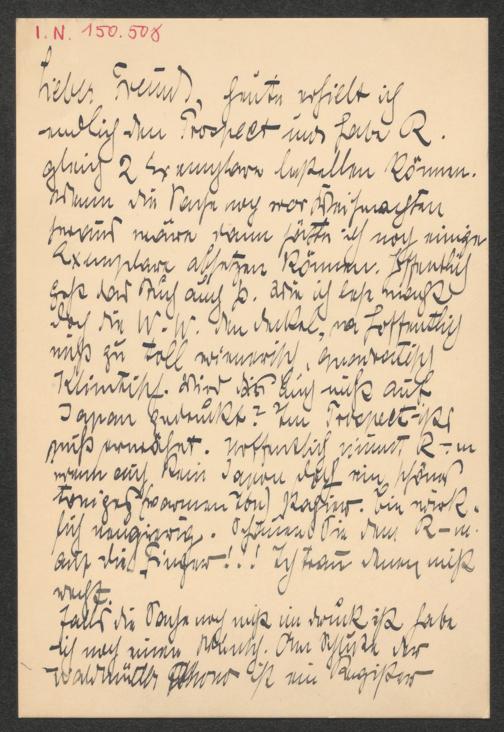 I.N. 150.508
Lieber Freund, heute erhielt ich
endlich den Prospect und habe R.
gleich 2 Exemplare bestellen können.
Wenn die Sache noch vor Weihnachten
heraus wäre dann hätte ich noch einige
Exemplare absetzen können. Hoffentlich
geht das Buch auch so. Wie ich lese macht
doch die W. W. den Deckel, na hoffentlich
nicht zu toll wienerisch, quadratisch
Klimtisch. Wird das Buch nicht auf
Japan gedruckt? Im Prospect ists
nicht erwähnt. Hoffentlich nimmt R-m
wenn auch kein Japan doch ein schönes
toniges (warmen Ton) Papier. Bin wirk-
lich neugierig. Schauen Sie dem R-m.
auf die Finger!!! Ich trau denen nicht
recht.
Falls die Sache noch nicht im Druck ist habe
ich noch einen Wunsch. Am Schluße der
Waldmüller ist ein Register